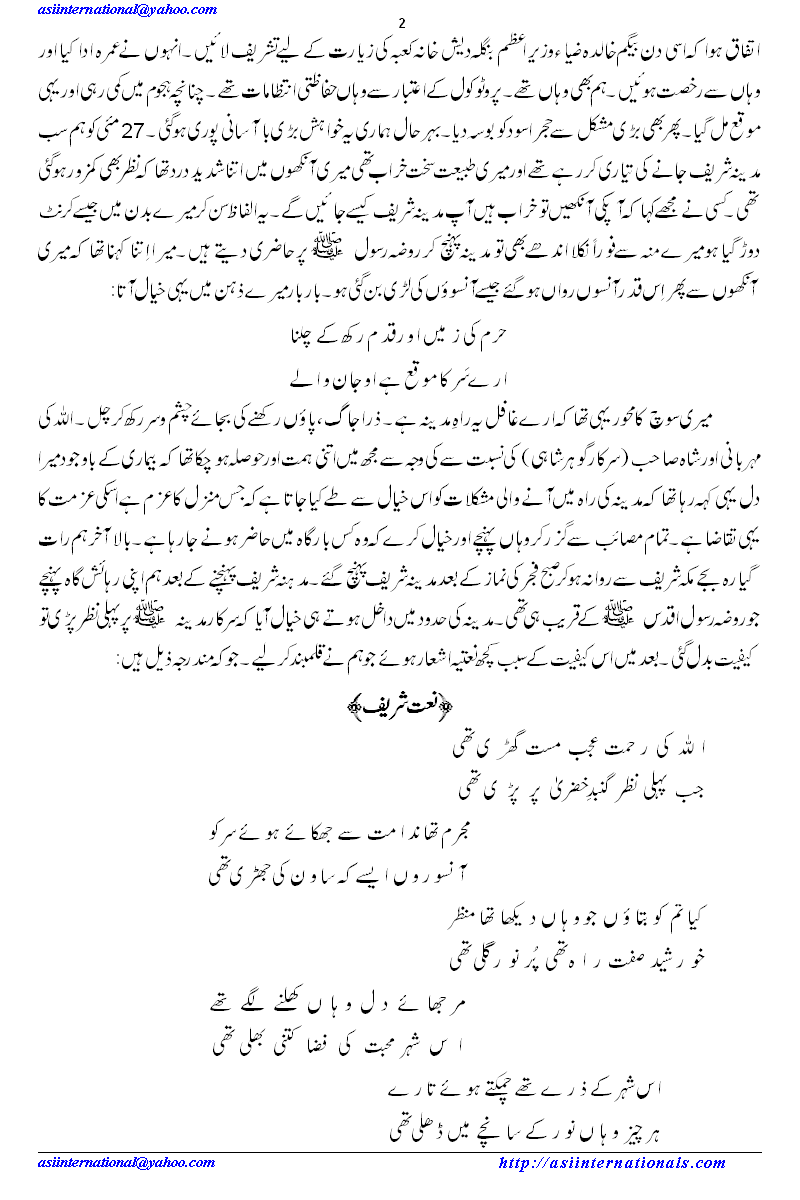 asiinternational@yahoo.com
2
اتفاق ہوا کہ اسی دن بیگم خالدہ ضیاء وزیر اعظم بنگلہ دیش خانہ کعبہ کی زیارت کے لیے تشریف لائیں۔ انہوں نے عمرہ ادا کیا اور
وہاں سے رخصت ہوئیں۔ ہم بھی وہاں تھے۔ پروٹوکول کے اعتبار سے وہاں حفاظتی انتظامات تھے۔ چنانچہ ہجوم میں کمی رہی اور یہی
موقع مل گیا۔ پھر بھی بڑی مشکل سے حجر اسود کو بوسہ دیا۔ بہر حال ہماری یہ خواہش بڑی با آسانی پوری ہو گئی۔ 27 مئی کو ہم سب
مدینہ شریف جانے کی تیاری کر رہے تھے اور میری طبیعت سخت خراب تھی میری آنکھوں میں اتنا شدید درد تھا کہ نظر بھی کمزور ہو گئی
تھی۔ کسی نے مجھے کہا کہ آپکی آنکھیں تو خراب ہیں آپ مدینہ شریف کیسے جائیں گے۔ یہ الفاظ سن کر میرے بدن میں جیسے کرنٹ
دوڑ گیا ہو میرے منہ سے فوراً نکلا اندھے بھی تو مدینہ پہنچ کر روضہ رسول ﷺ پر حاضری دیتے ہیں۔ میرا اتنا کہنا تھا کہ میری
آنکھوں سے پھر اِس قدر آنسوں رواں ہو گئے جیسے آنسوؤں کی لڑی بن گئی ہو۔ بار بار میرے ذہن میں یہی خیال آتا:
حرم کی زمیں اور قدم رکھ کے چلنا
ارے سَر کا موقع ہے او جان والے
میری سوچ کا محور یہی تھا کہ ارے غافل یہ راہِ مدینہ ہے۔ ذرا جاگ، پاؤں رکھنے کی بجائے چشم و سر رکھ کر چل۔ اللہ کی
مہربانی اور شاہ صاحب (سرکار گوہر شاہی) کی نسبت سے کی وجہ سے مجھ میں اتنی ہمت اور حوصلہ ہو چکا تھا کہ بیماری کے باوجود میرا
دل یہی کہہ رہا تھا کہ مدینہ کی راہ میں آنے والی مشکلات کو اس خیال سے طے کیا جاتا ہے کہ جس منزل کا عزم ہے اسکی عزمت کا
یہی تقاضا ہے۔ تمام مصائب سے گزر کر وہاں پہنچے اور خیال کرے کہ وہ کس بارگاہ میں حاضر ہونے جا رہا ہے۔ بالا آخر ہم رات
گیارہ بجے مکہ شریف سے روانہ ہو کر صبح فجر کی نماز کے بعد مدینہ شریف پہنچ گئے۔ مدینہ شریف پہنچنے کے بعد ہم اپنی رہائش گاہ پہنچے
جو روضہ رسول اقدس ﷺ کے قریب ہی تھی۔ مدینہ کی حدود میں داخل ہوتے ہی خیال آیا کہ سرکار مدینہ ﷺ پر پہلی نظر پڑی تو
کیفیت بدل گئی۔ بعد میں اس کیفیت کے سبب کچھ نعتیہ اشعار ہوئے جو ہم نے قلمبند کر لیے۔ جو کہ مندرجہ ذیل ہیں:
﴿نعت شریف﴾
اللہ کی رحمت عجب مست گھڑی تھی
جب پہلی نظر گنبدِ خضریٰ پر پڑی تھی
مجرم تھا ندامت سے جھکائے ہوئے سر کو
آنسو روں ایسے کہ ساون کی جھڑی تھی
کیا تم کو بتاؤں جو وہاں دیکھا تھا منظر
خورشید صفت راہ تھی پُر نور گلی تھی
مرجھائے دل وہاں کھلنے لگے تھے
اس شہر محبت کی فضا کتنی بھلی تھی
اس شہر کے ذرے تھے چمکتے ہوئے تارے
ہر چیز وہاں نور کے سانچے میں ڈھلی تھی
asiinternational@yahoo.com
http://asiinternationals.com